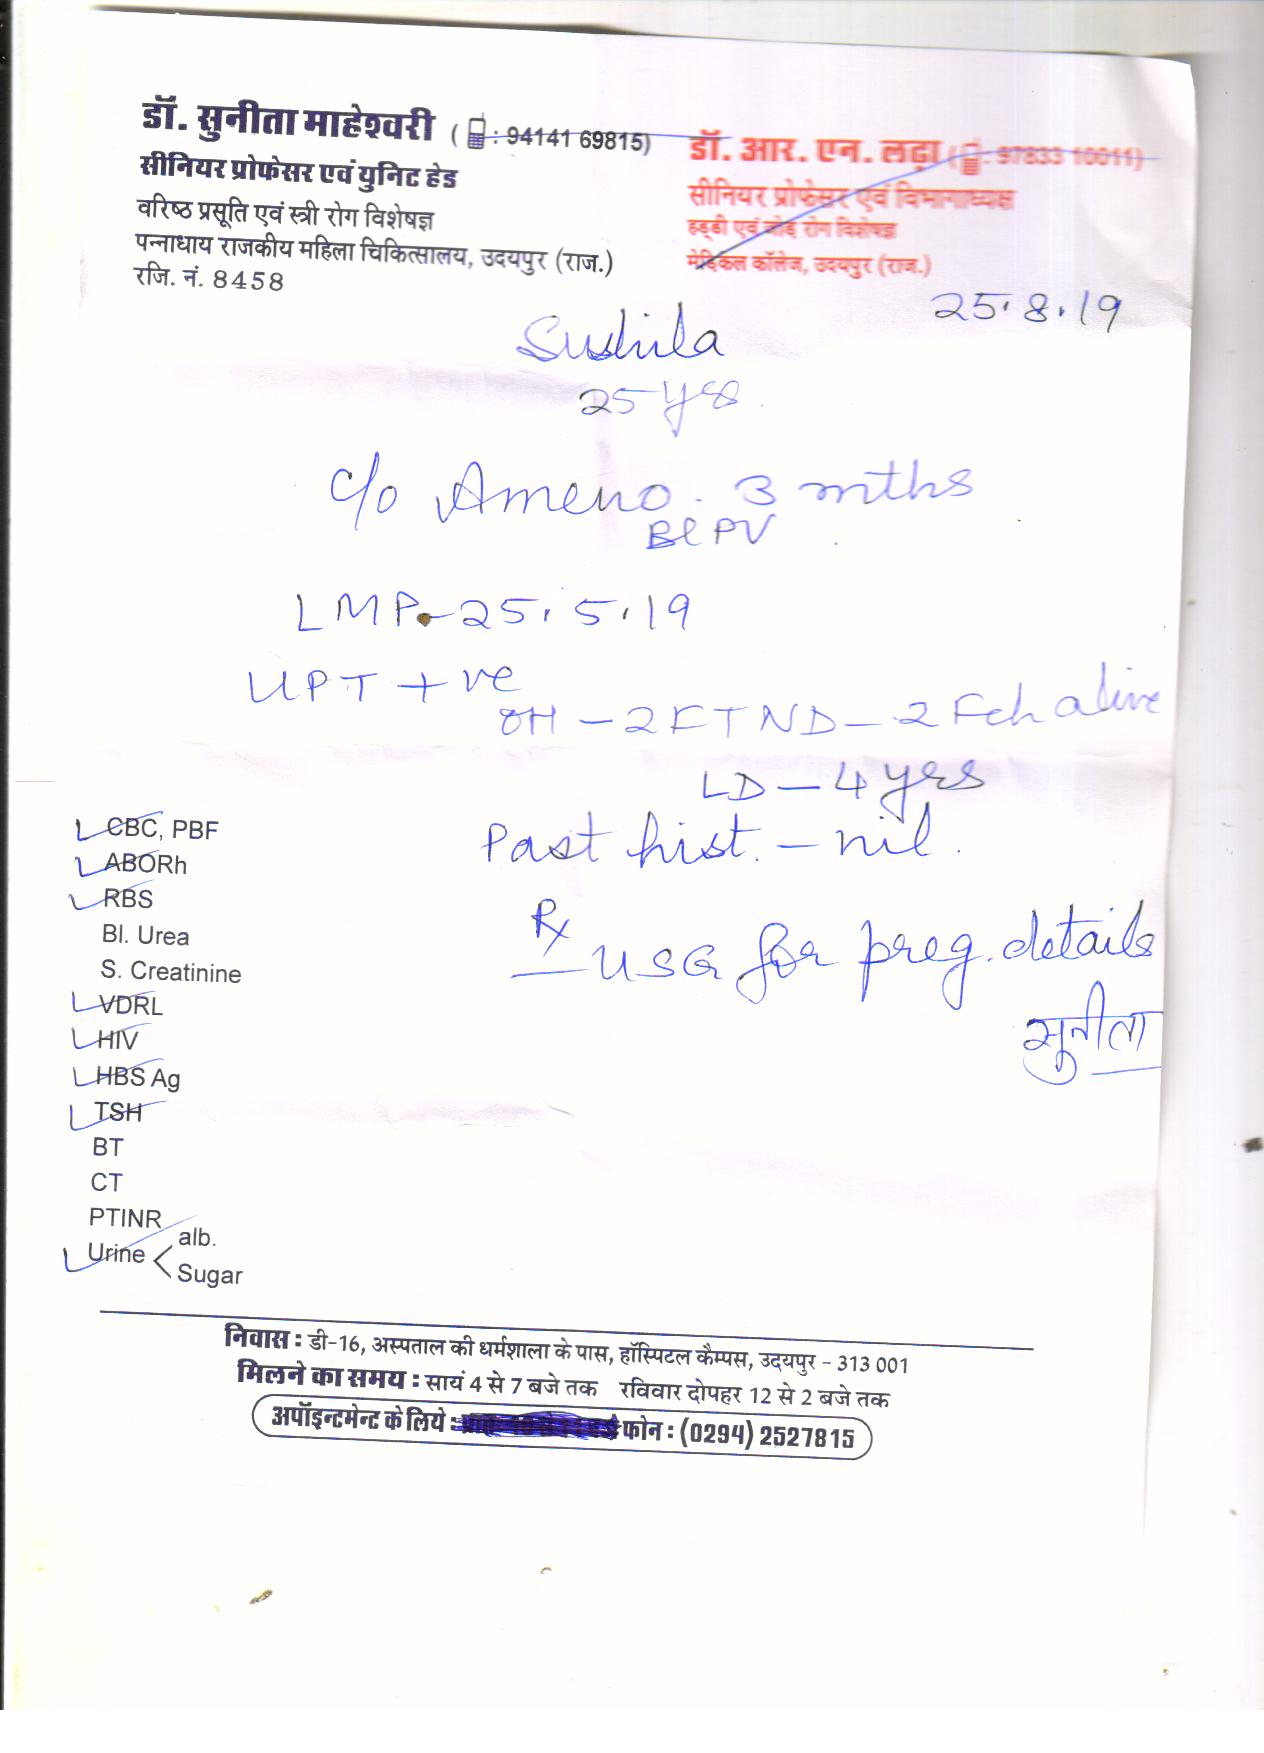 डॉ. सुनीता माहेश्वरी ( : 94141 69815)
सीनियर प्रोफेसर एवं युनिट हेड
वरिष्ठ प्रसूति एवं स्त्री रोग विशेषज्ञ
पन्नाधाय राजकीय महिला चिकित्सालय, उदयपुर (राज.)
रजि. नं. 8458
डॉ. आर. एन. लढ़ा ( : 97833 10011)
सीनियर प्रोफेसर एवं विभागाध्यक्ष
हड्डी एवं जोड़ रोग विशेषज्ञ
मेडिकल कॉलेज, उदयपुर (राज.)
25.8.19
Sushila
25 yrs.
c/o Ameno. 3 mths
Bl PV
LMP - 25.5.19
UPT +ve
OH - 2 FTND - 2 Fch alive
LD - 4 yrs
Past hist. - nil.
Rx
USG for preg. details
सुनीता
CBC, PBF
ABORh
RBS
Bl. Urea
S. Creatinine
VDRL
HIV
HBS Ag
TSH
BT
CT
PTINR
Urine < alb.
Sugar
निवास : डी-16, अस्पताल की धर्मशाला के पास, हॉस्पिटल कैम्पस, उदयपुर - 313 001
मिलने का समय : सायं 4 से 7 बजे तक रविवार दोपहर 12 से 2 बजे तक
अपॉइन्टमेन्ट के लिये : फोन : (0294) 2527815